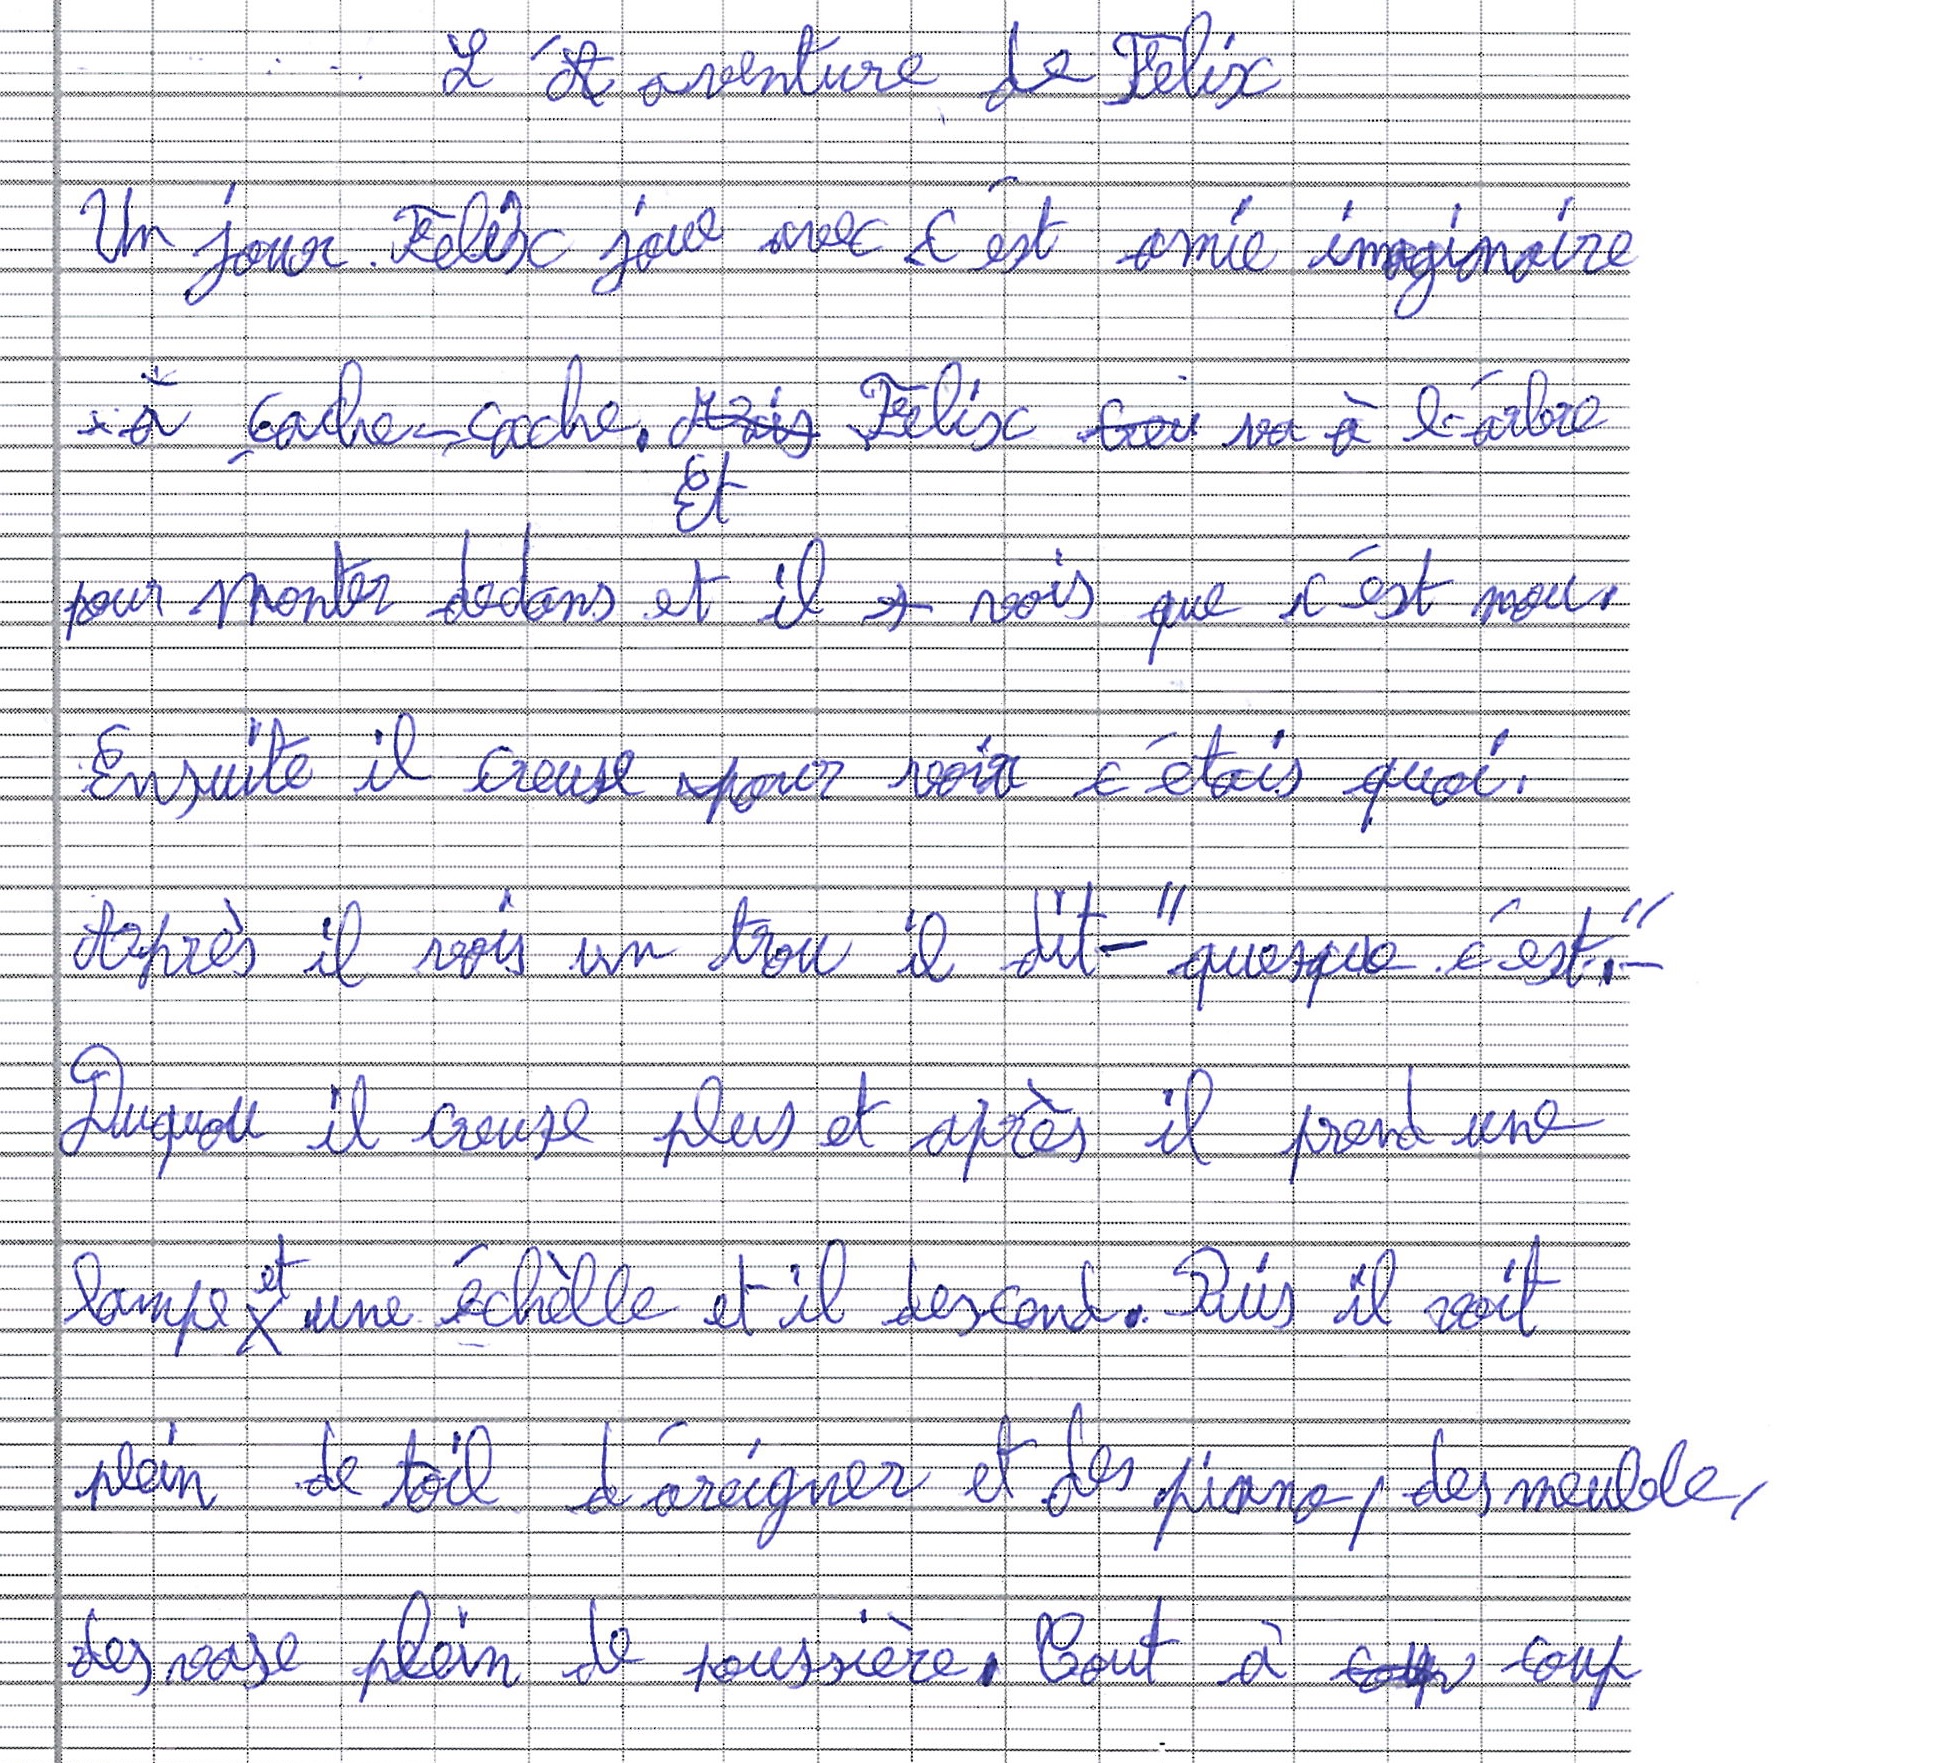 L'aventure de Felix
Un jour. Felix joue avec c'est amie imaginaire
à cache-cache. Mais Felix va à l'arbre
Et
pour monter dedans et il vois que c'est mou.
Ensuite il creuse pour voir c'étais quoi.
Après il vois un trou il dit-"quesque c'est."-
Duquou il creuse plus et après il prend une
lampe et une échèlle et il descend. Puis il voit
plein de toil d'areigner et des piano, des meuble,
des vase plein de poussière. Tout à coup coup